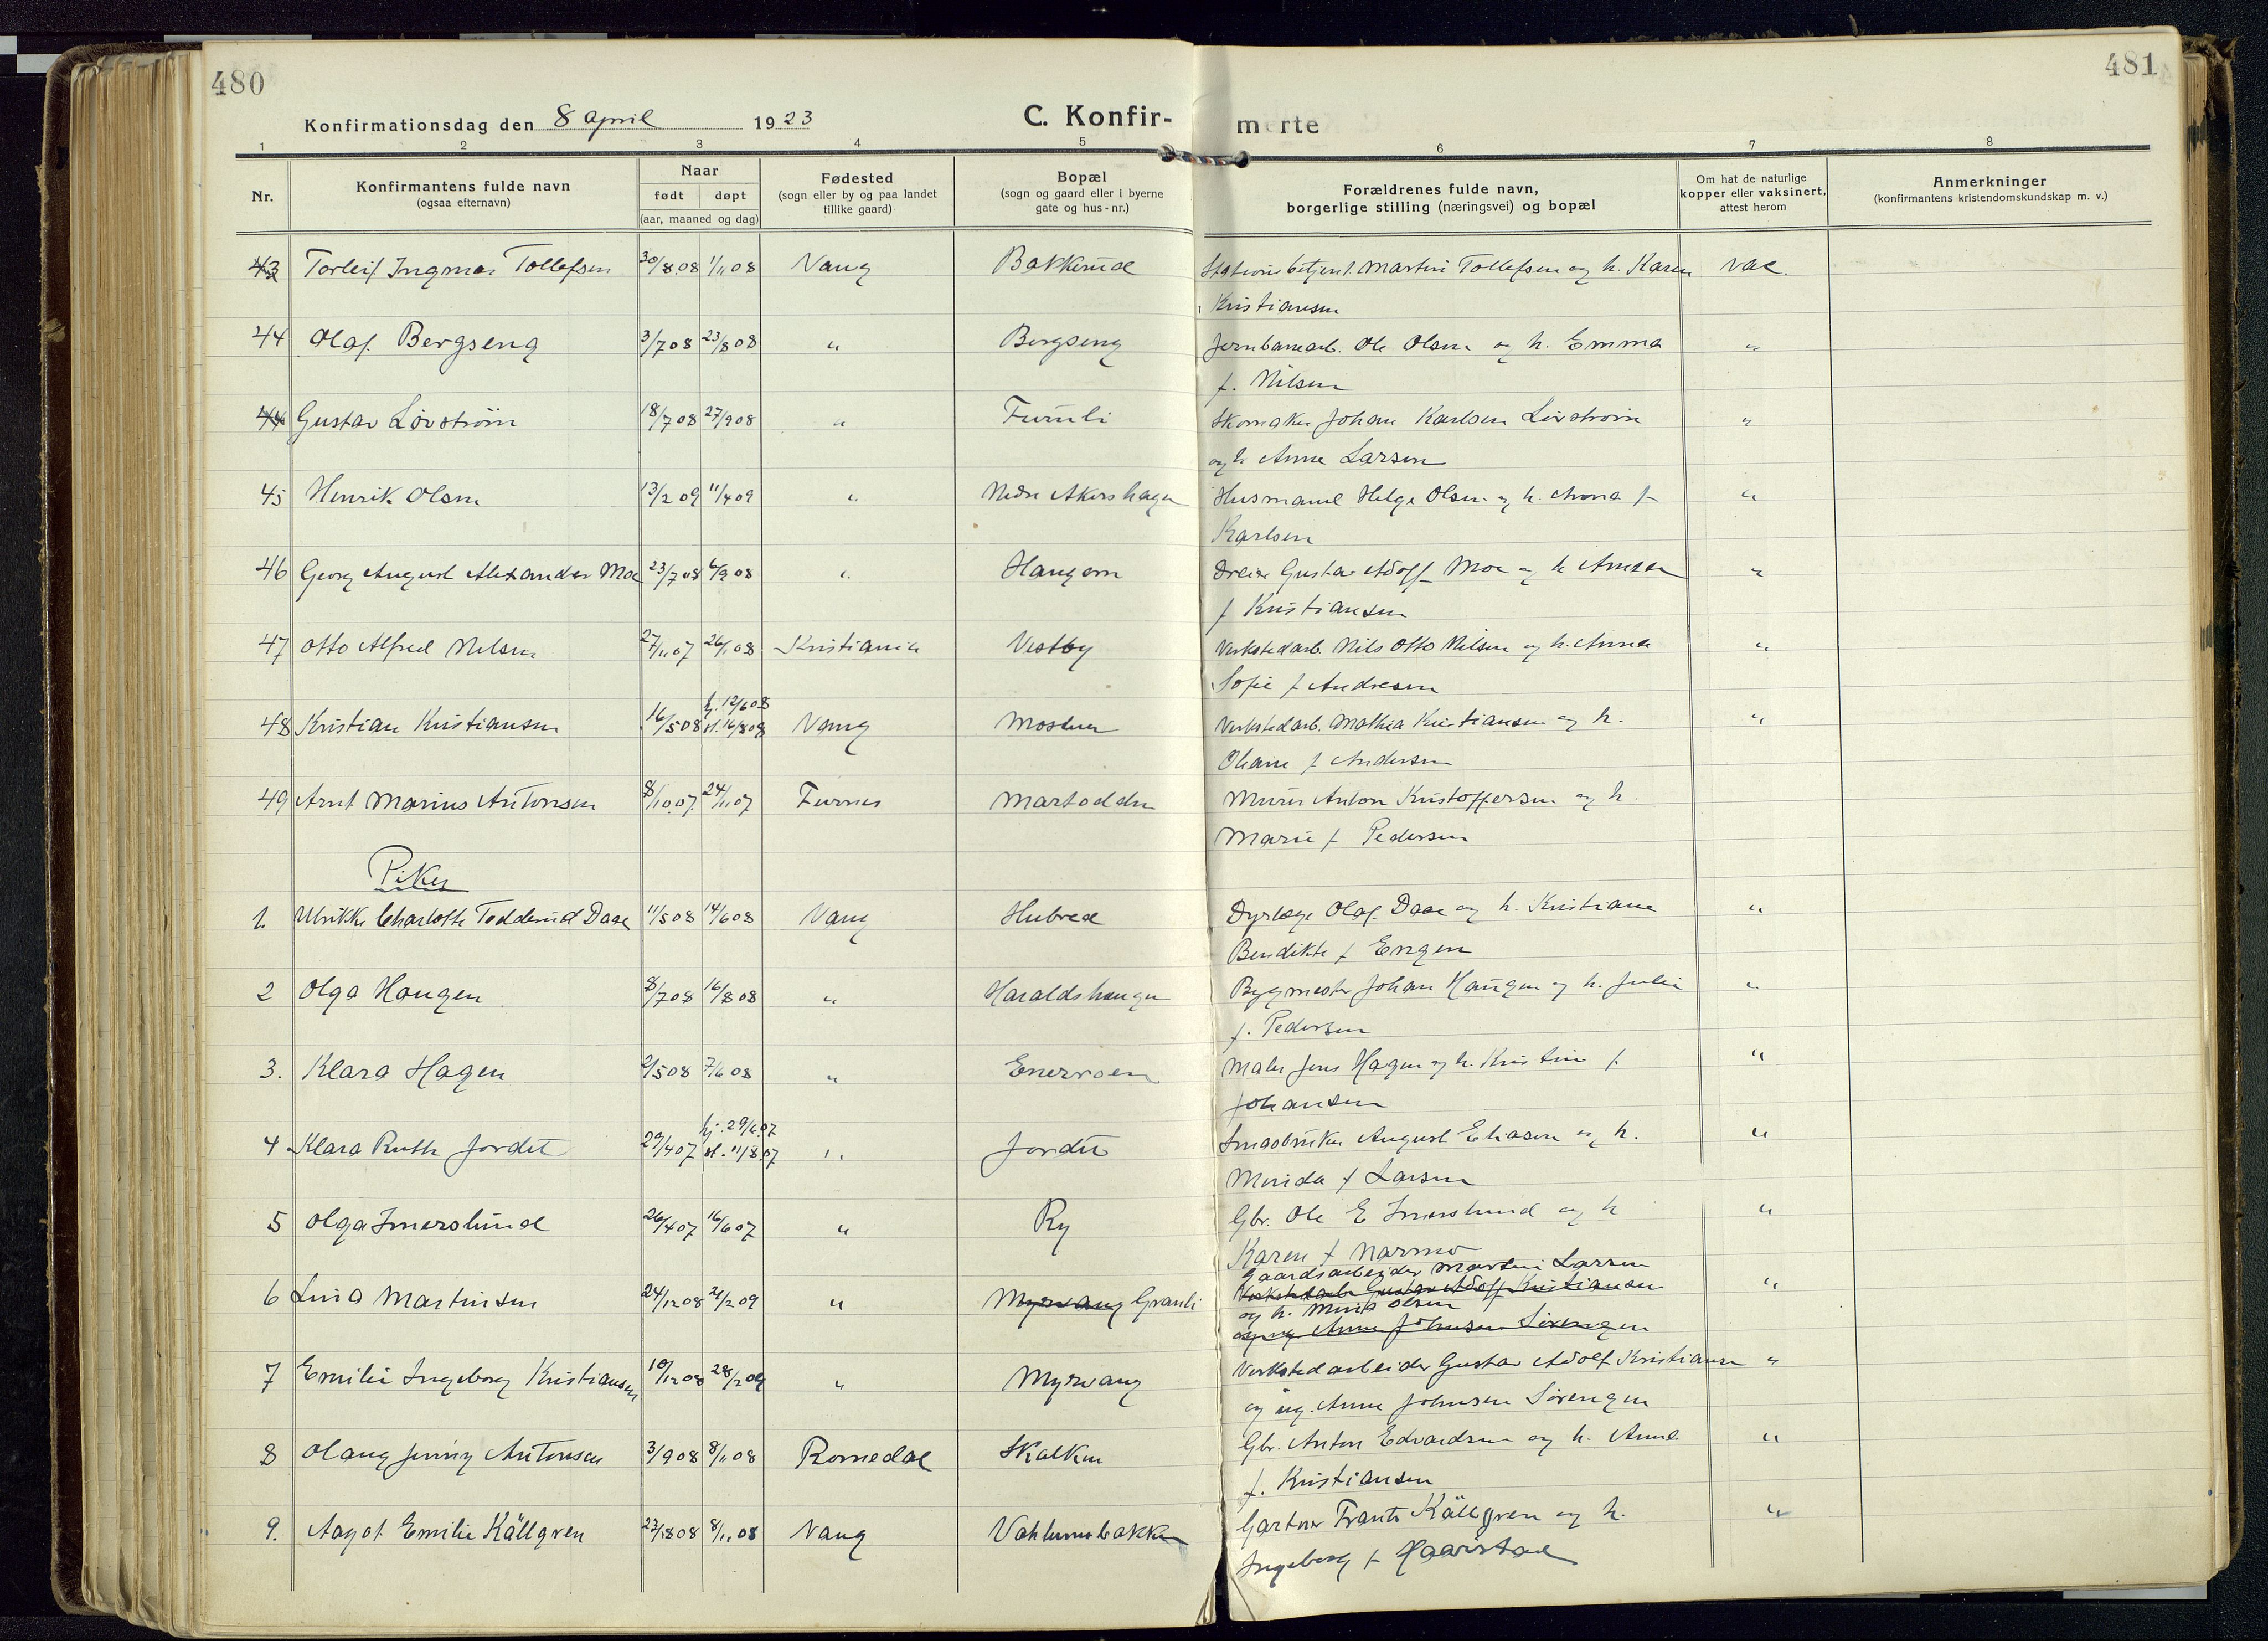 480
481
Konfirmationsdag den 8 April 1923
C. Konfir- merte
1 2 3 4 5 6 7 8
Nr.
Konfirmantens fulde navn
(ogsaa efternavn)
Naar
født døpt
(aar, maaned og dag)
Fødested
(sogn eller by og paa landet
tillike gaard)
Bopæl
(sogn og gaard eller i byerne
gate og hus-nr.)
Forældrenes fulde navn,
borgerlige stilling (næringsvei) og bopæl
Om hat de naturlige
kopper eller vaksinert,
attest herom
Anmerkninger
(konfirmantens kristendomskundskap m. v.)
43 Torleif Ingmar Tollefsen 30/8.08 1/11 08 Vang Bakkerud Stationsbetjent Martin Tollefsen og h. Karen vac.
Kristiansen
44 Olaf Bergseng 3/7 08 23/8 08 " Bergseng Jernbanearb. Ole Olsen og h. Emma "
f. Nilsen
44 Gustav Løvstrøm 18/7 08 27/9 08 " Furuli Skomaker Johan Karlsen Løvstrøm "
og h Anne Larsen
45 Henrik Olsen 13/2 09 11/4 09 " Nedre Akershagen Husmand Helge Olsen og h. Anna f "
Karlsen
46 Georg August Alexander Moe 23/7 08 6/9 08 " Haugom Dreier Gustav Adolf Moe og h
f Kristiansen
47 Otto Alfred Nilsen 27/11 07 26/1 08 Kristiania Vestby Verkstedarb. Nils Otto Nilsen og h. Anna "
Sofie f Andresen
48 Kristian Kristiansen 16/5 08 hj. 12/6 08 st. 16/8 08 Vang Verkstedarb. Mathia Kristiansen og h. "
Oleane f Andersen
49 Arnt Marius Antonsen 8/10.07. 24/11 07 Furnes Martodden Murer Anton Kristoffersen og h.
Marie f Pedersen
Piker
1. Ulrikke Charlotte Tødderud Daae 11/5 08 14/6 08 Vang Hubred Dyrlæge Olaf Daae og h. Kristiane "
Bendikte f Engen
2 Olga Haugen 8/7 08 16/8 08 " Haraldshaugen Bygmester Johan Haugen og h. Julie "
f. Pedersen
3. Klara Hagen 2/5 08 7/6 08 " Enervoen Maler Jens Hagen og h. Kristine f. "
Johansen
4 Klara Ruth Jordet 29/4 07 hj. 29/6.07 st. 11/8.07 " Jordet Smaabruker August Eliasen og h. "
Minda f Larsen
5 Olga Imerslund 26/4 07 16/6 07 " Ry Gbr. Ole E Imerslund og h "
Karen f Narmo
6 Lina Martinsen 24/12 08 21/2 09 " Myrvang Granli Gaardsarbeider Martin Larsen "
Verkstedarb Gustav Adolf Kristiansen
og h. Olsen
og ug Anne Johnsen Sørengen
7 Emilie Ingeborg Kristiansen 10/12 08 28/2 09 " Myrvang Verkstedarbeider Gustav Adolf Kristiansen "
og ug. Anne Johnsen Sørengen
8 Olaug Jenny Antonsen 3/9 08 8/11 08 Romedal Skalken Gbr. Anton Edvardsen og h. Anne "
f. Kristiansen
9. Aagot Emilie Källgren 23/8 08 8/11 08 Vang Gartner Frantz Källgren og h. "
Ingeborg f Haarstad